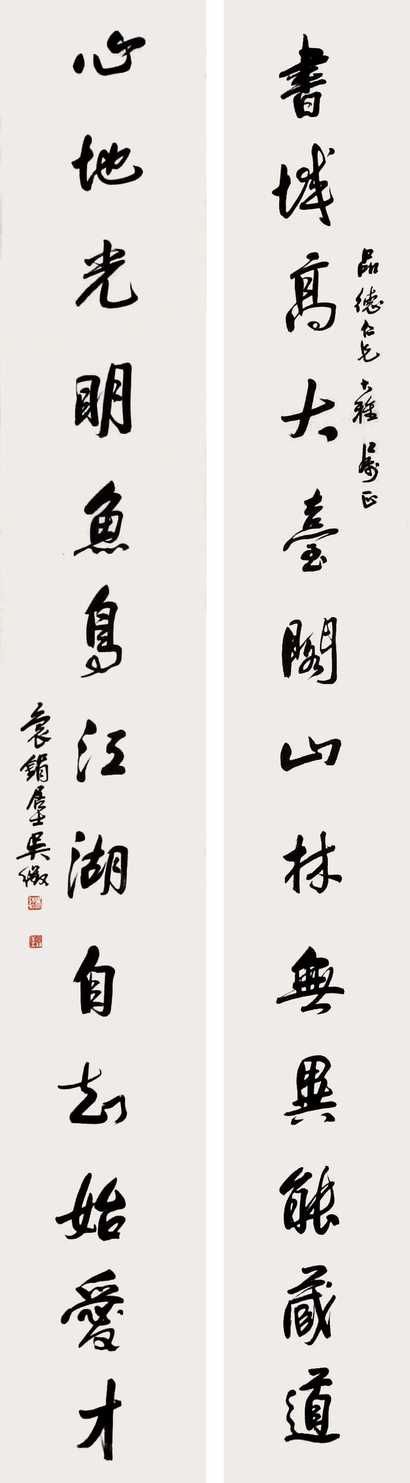 品德仁兄大雅屬正
書城高大臺閣山林無異能藏道
心地光明魚鳥江湖自知始愛才
袌鋗居士吳徵